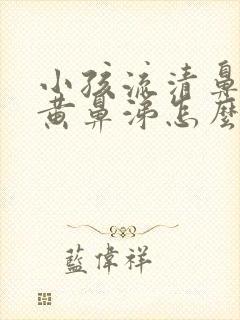 小孩流清鼻
黄鼻涕怎麼
藍偉祥